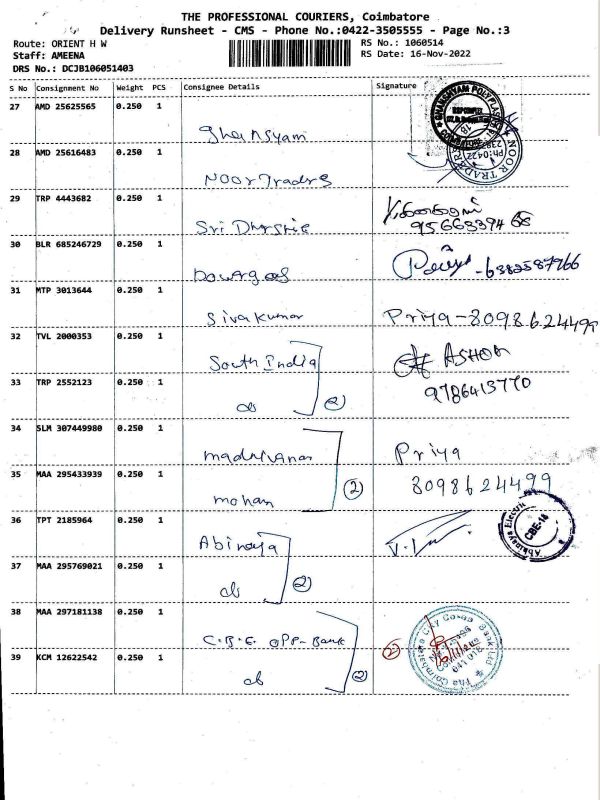 THE PROFESSIONAL COURIERS, Coimbatore
Delivery Runsheet - CMS - Phone No.:0422-3505555 - Page No.:3
Route: ORIENT H W
RS No.: 1060514
Staff: AMEENA
RS Date: 16-Nov-2022
DRS No.: DCJB106051403
S No Consignment No Weight PCS Consignee Details Signature
27 AMD 25625565 0.250 1
GhanSyam
28 AMD 25616483 0.250 1
NoorTraders
NOOR TRADERS
29 TRP 4443682 0.250 1
Sri
30 BLR 685246729 0.250 1
31 MTP 3013644 0.250 1
Siva kumar Priya-8098624499
32 TVL 2000353 0.250 1
South India ASHOK
33 TRP 2552123 0.250 1
do (2) 9786413770
34 SLM 307449980 0.250 1
Priya
35 MAA 295433939 0.250 1
mohan (2) 8098624499
36 TPT 2185964 0.250 1
Abinaya
Abhinaya Electric
CBE-18
37 MAA 295769021 0.250 1
do (2)
38 MAA 297181138 0.250 1
C.B.E opp-Bank (2)
The Coimbatore City Co-op Bank Ltd
641 018
39 KCM 12622542 0.250 1
do (2)